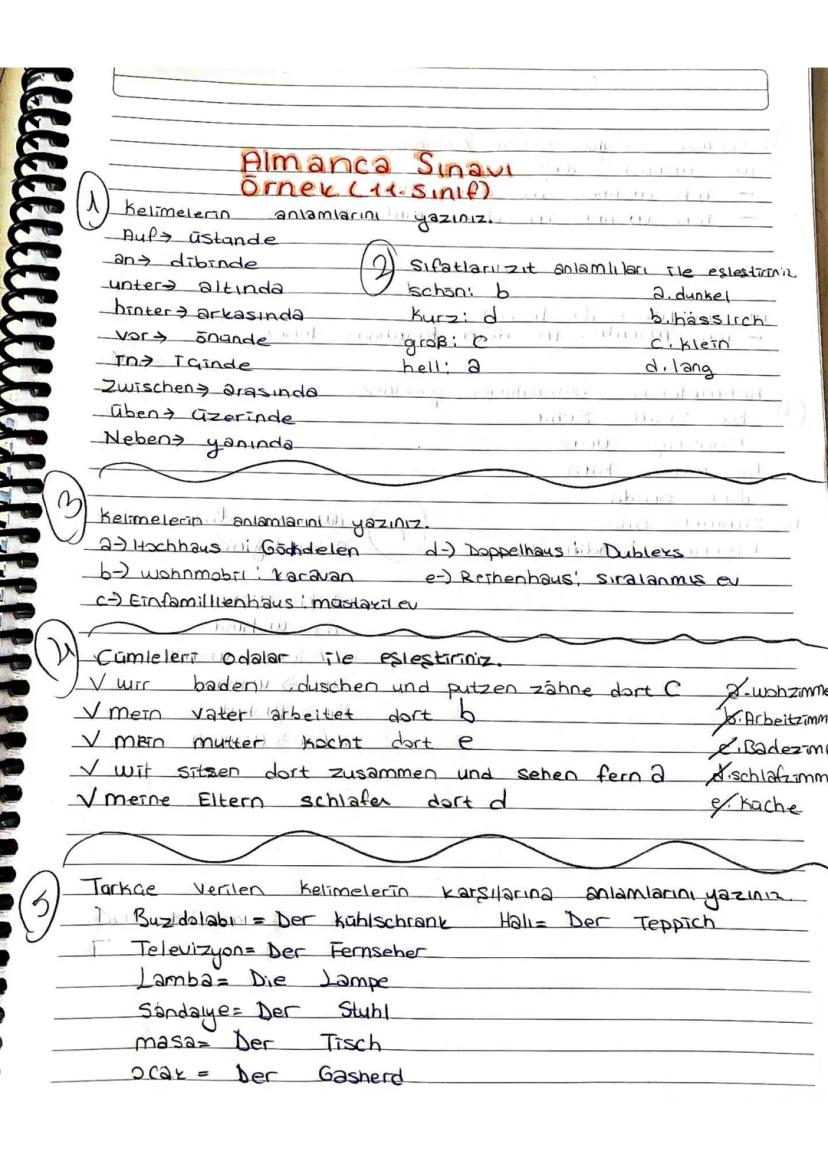 Almanca Sınavı
Örnek (11.Sınıf)
1 Kelimelerin anlamlarını yazınız.
Auf→ üstünde
an→ dibinde
unter→ altında
hinter→ arkasında
vor→ önünde
In→ İçinde
Zwischen→ arasında
Üben→ üzerinde
Neben→ yanında
2 Sıfatları zıt anlamlıları ile eşleştiriniz
schön: b a. dunkel
kurz: d b. hässlich
groß: c c. klein
hell: a d. lang
3 Kelimelerin anlamlarını yazınız.
a-) Hochhaus : Gökdelen d-) Doppelhaus : Dubleks
b-) wohnmobil : karavan e-) Reihenhaus: sıralanmıs ev
c-) Einfamillienhaus : müstakil ev
4 Cümleleri odalar ile eşleştiriniz.
√ wir baden duschen und putzen zähne dort C a.-wohzimme
√ mein vater arbeitet dort b b. Arbeitzimm
√ mein mutter kocht dort e c. Badezim
√ wit sitsen dort zusammen und sehen fern a d. schlafzimm
√ meine Eltern schlafer dort d e. Küche
5 Türkçe verilen kelimelerin karşılarına anlamlarını yazınız.
Buzdolabı = Der kühlschrank Halı= Der Teppich
Televizyon= Der Fernseher
Lamba= Die Lampe
Sandalye= Der Stuhl
masa= Der Tisch
ocak = Der Gasherd